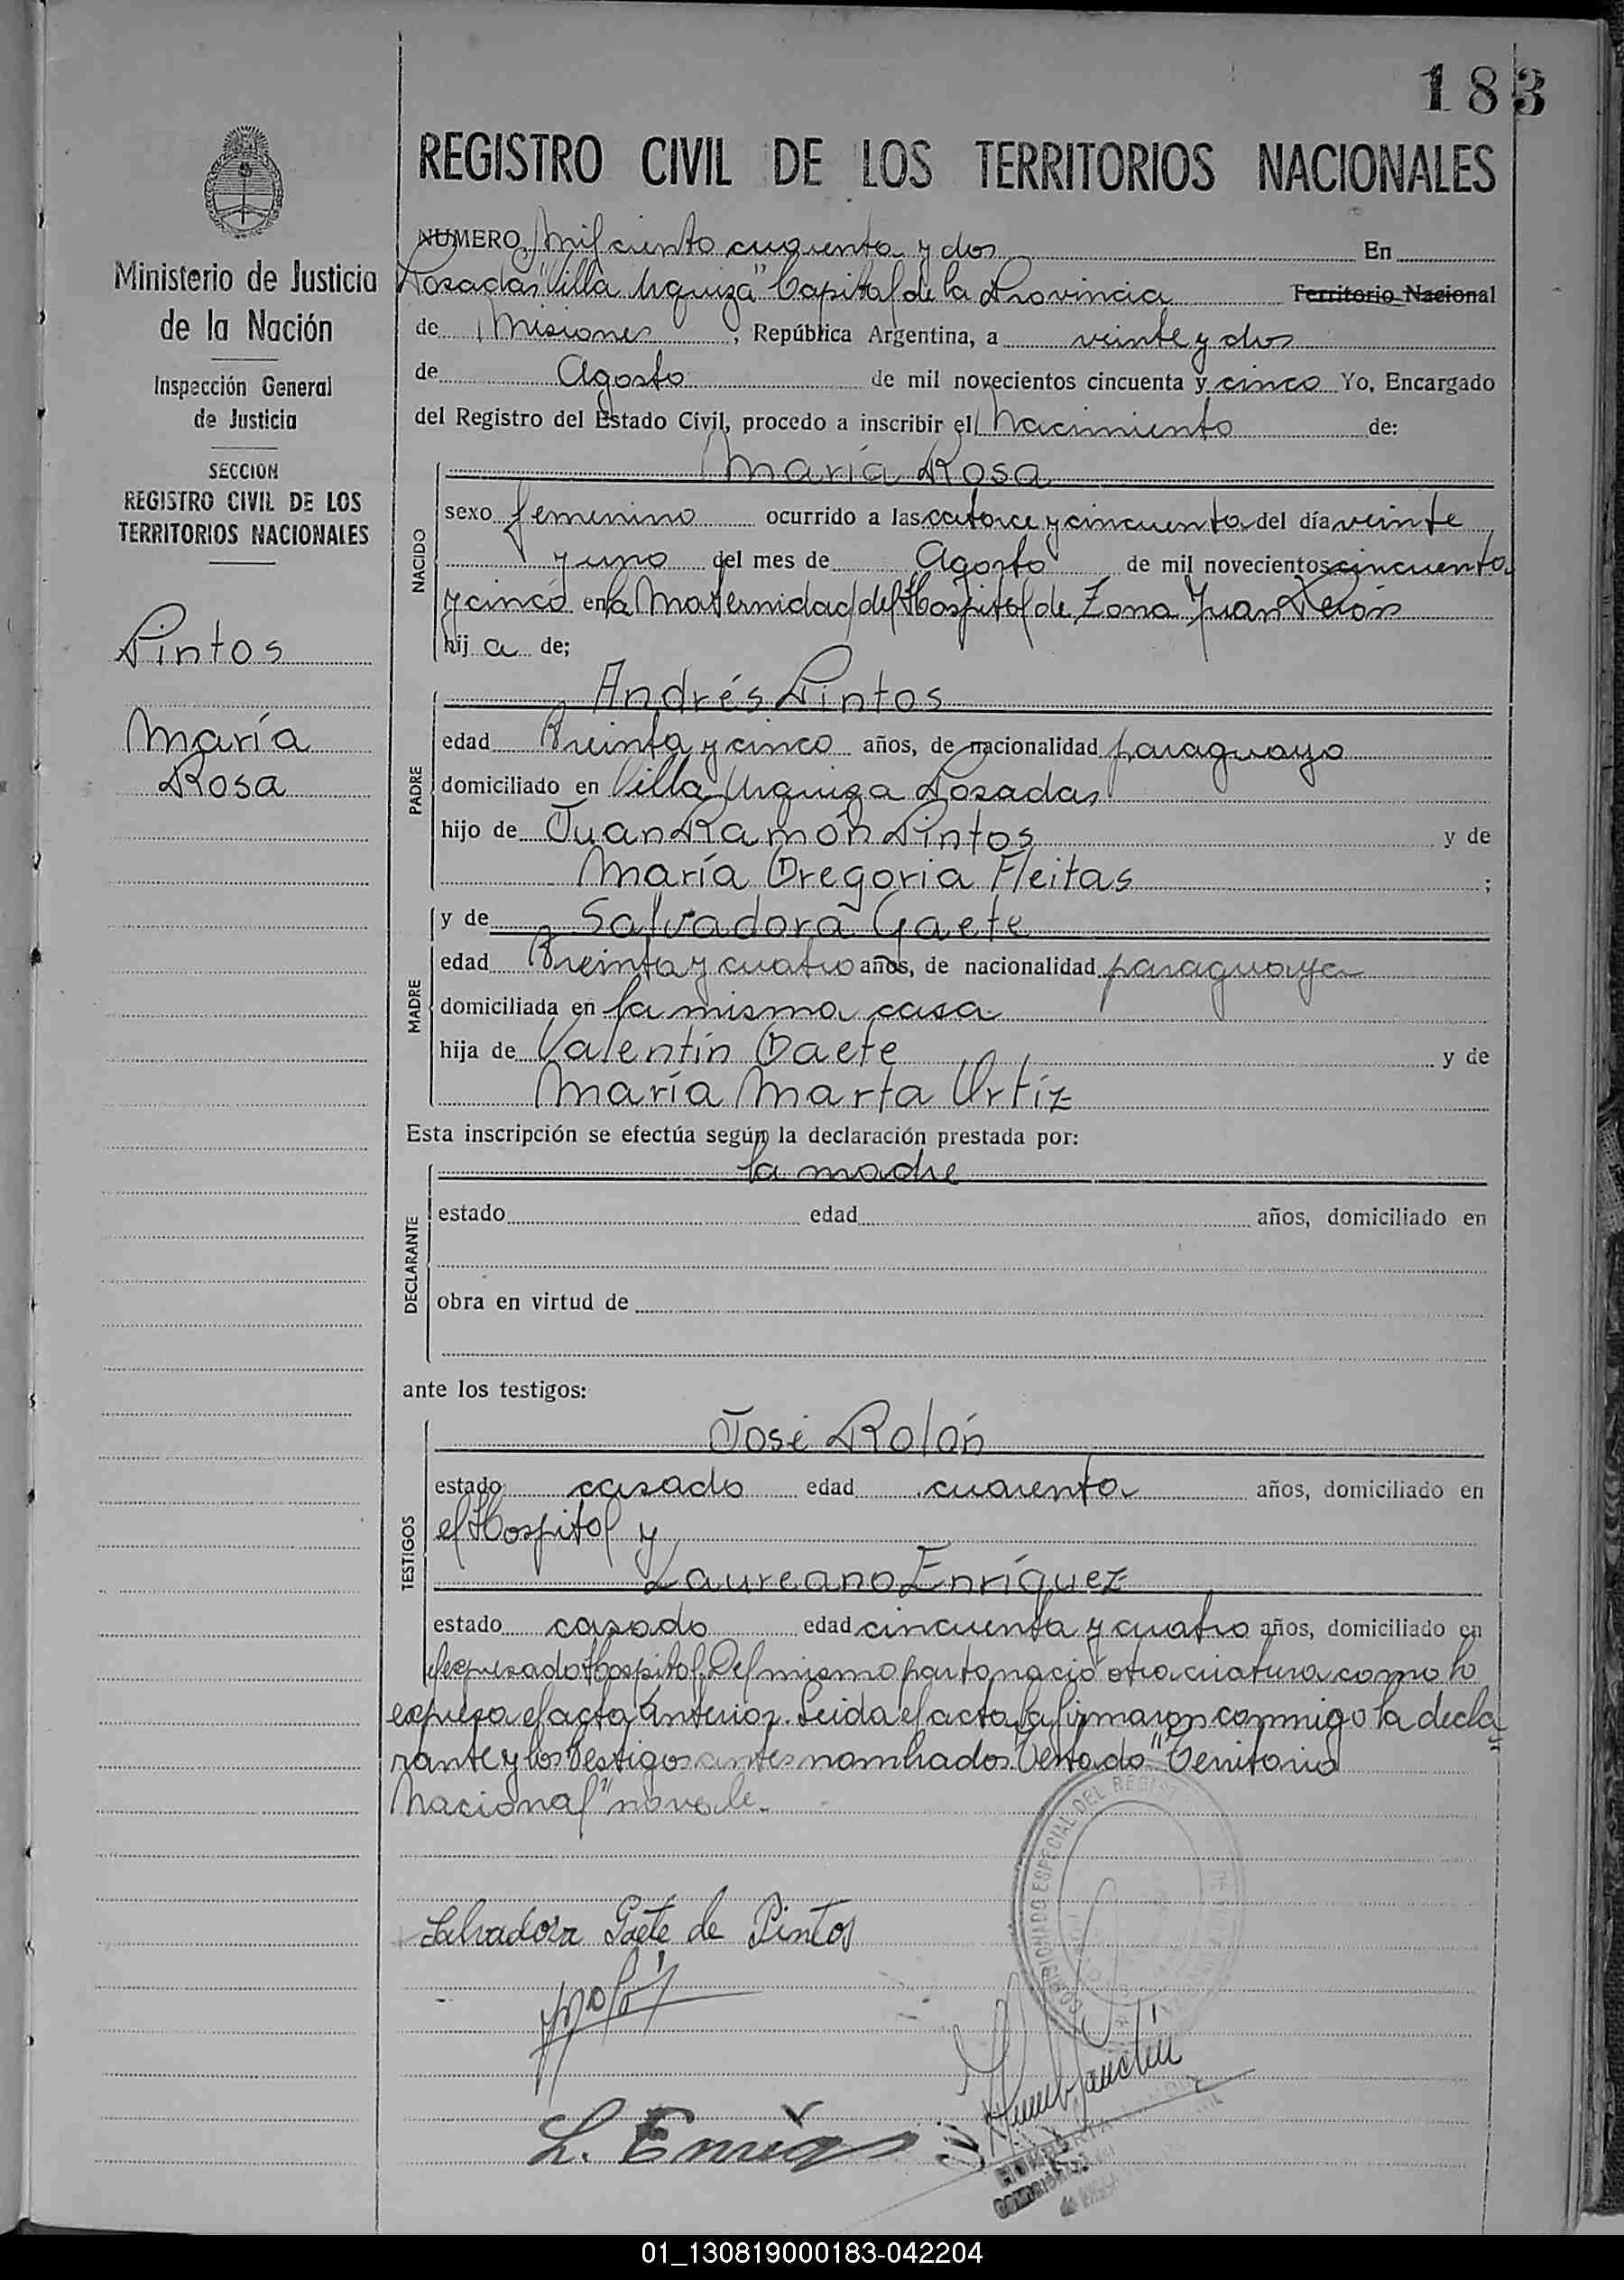 183
REGISTRO CIVIL DE LOS TERRITORIOS NACIONALES
Ministerio de Justicia
de la Nación
Inspección General
de Justicia
SECCION
REGISTRO CIVIL DE LOS
TERRITORIOS NACIONALES
Pintos
María
Rosa
NUMERO, Mil ciento cuarenta y dos En
Posadas "Villa Urquiza" Capital de la Provincia Territorio Nacional
de Misiones, República Argentina, a veinte y dos
de Agosto de mil novecientos cincuenta y cinco Yo, Encargado
del Registro del Estado Civil, procedo a inscribir el Nacimiento de:
NACIDO
María Rosa
sexo femenino ocurrido a las catorce y cincuenta del día veinte
y uno del mes de Agosto de mil novecientos cincuenta
y cinco en la Maternidad del Hospital de Zona Juan Perón
hij a de;
PADRE
Andrés Pintos
edad Treinta y cinco años, de nacionalidad paraguayo
domiciliado en Villa Urquiza Posadas
hijo de Juan Ramón Pintos y de
María Gregoria Fleitas ;
MADRE
y de Salvadora Gaete
edad Treinta y cuatro años, de nacionalidad paraguaya
domiciliada en la misma casa
hija de Valentín Gaete y de
María Marta Ortíz
Esta inscripción se efectúa según la declaración prestada por:
DECLARANTE
la madre
estado edad años, domiciliado en
obra en virtud de
ante los testigos:
TESTIGOS
José Rolón
estado casado edad cuarenta años, domiciliado en
el Hospital y
Laureano Enríquez
estado casado edad cincuenta y cuatro años, domiciliado en
el expresado Hospital. Del mismo parto nació otra criatura como lo
expresa el acta anterior. Leida el acta la firmaron conmigo la decla
rante y los testigos antes nombrados. Testado "Territorio
Nacional" no vale.
COMISIONADO ESPECIAL DEL REGIS
Salvadora Gaete de Pintos
L. Enriq
01_130819000183-042204